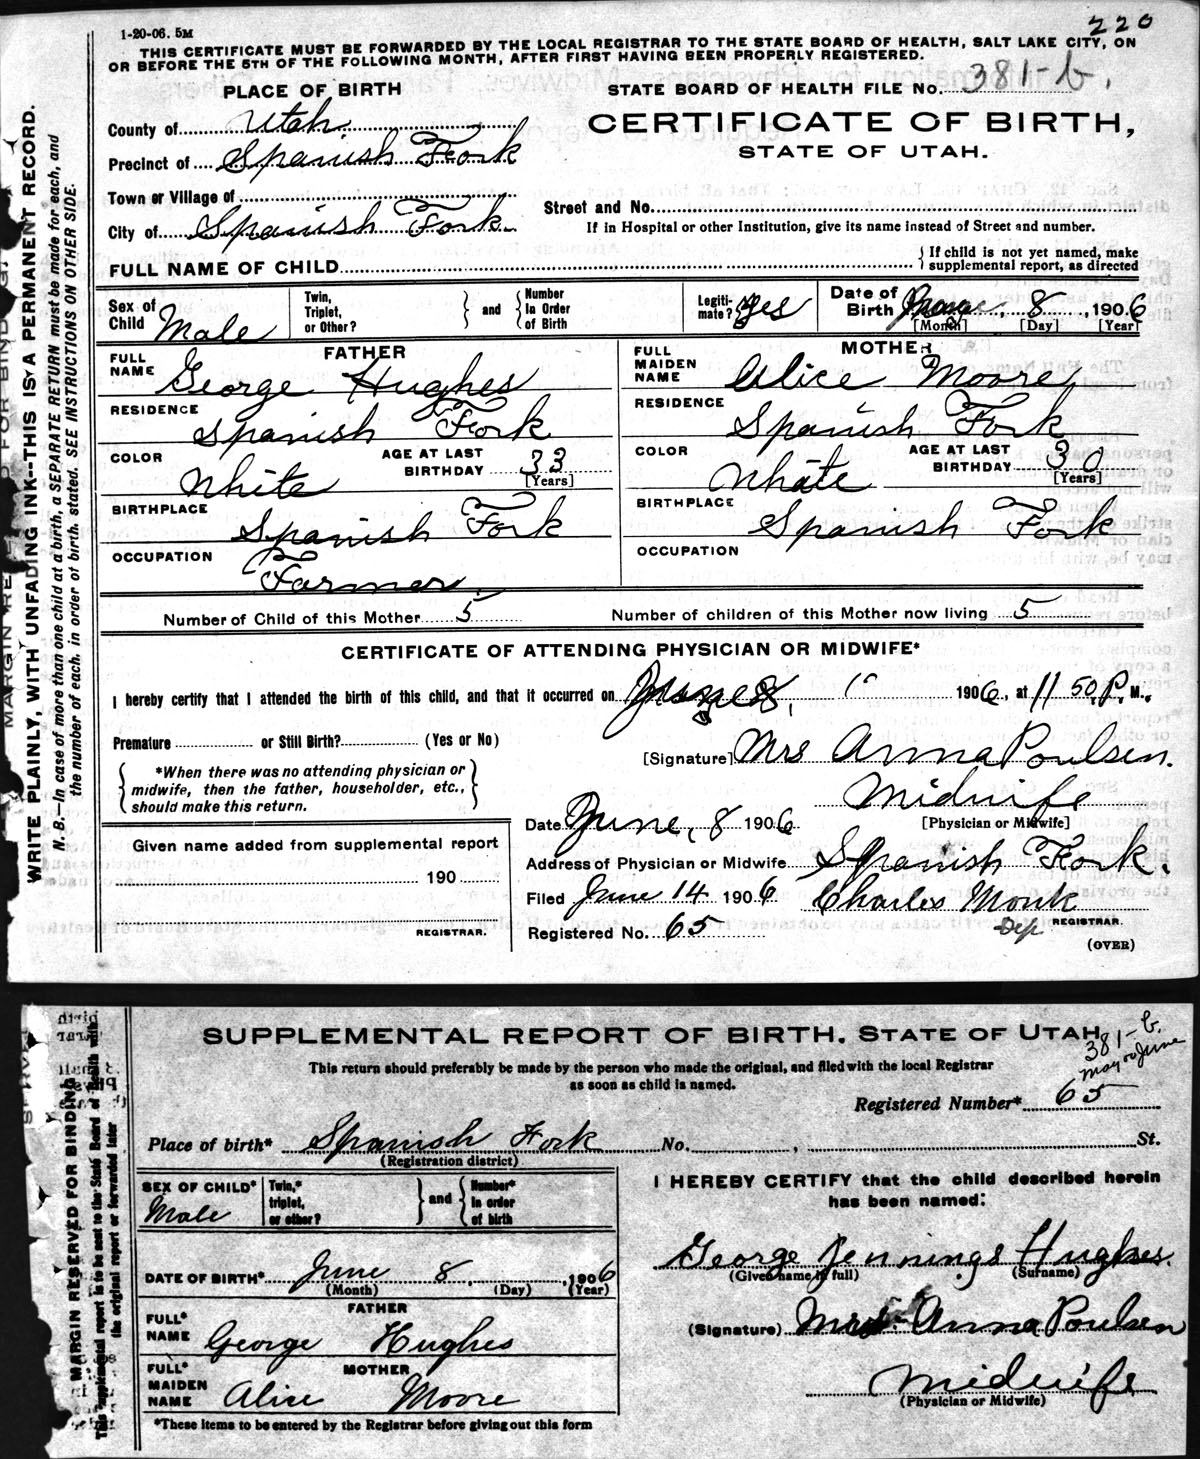 220
1-20-06. 5M
THIS CERTIFICATE MUST BE FORWARDED BY THE LOCAL REGISTRAR TO THE STATE BOARD OF HEALTH, SALT LAKE CITY, ON
OR BEFORE THE 5TH OF THE FOLLOWING MONTH, AFTER FIRST HAVING BEEN PROPERLY REGISTERED.
PLACE OF BIRTH
STATE BOARD OF HEALTH FILE No. 381-b.
County of Utah.
CERTIFICATE OF BIRTH,
STATE OF UTAH.
Precinct of Spanish Fork
Town or Village of
Street and No.
City of Spanish Fork.
If in Hospital or other Institution, give its name instead of Street and number.
FULL NAME OF CHILD
If child is not yet named, make
supplemental report, as directed
Sex of Child Male
Twin, Triplet, or Other?
and
Number In Order of Birth
Legiti-mate? Yes
Date of Birth 8, 1906
[Month] [Day] [Year]
FATHER
MOTHER
FULL NAME George Hughes
FULL MAIDEN NAME Alice Moore
RESIDENCE Spanish Fork
RESIDENCE Spanish Fork
COLOR White
AGE AT LAST BIRTHDAY 33 [Years]
COLOR White
AGE AT LAST BIRTHDAY 30 [Years]
BIRTHPLACE Spanish Fork
BIRTHPLACE Spanish Fork
OCCUPATION Farmer.
OCCUPATION
Number of Child of this Mother 5
Number of children of this Mother now living 5
CERTIFICATE OF ATTENDING PHYSICIAN OR MIDWIFE*
I hereby certify that I attended the birth of this child, and that it occurred on 8, 1906, at 11 50 P. M.,
Premature or Still Birth? (Yes or No)
[Signature] Mrs Anna Poulsen.
*When there was no attending physician or
midwife, then the father, householder, etc.,
should make this return.
Midwife
[Physician or Midwife]
Date June, 8 1906
Given name added from supplemental report
190
REGISTRAR.
Address of Physician or Midwife Spanish Fork.
Filed June 14 1906 Charles Monk
Dep REGISTRAR.
Registered No. 65
(OVER)
WRITE PLAINLY, WITH UNFADING INK--THIS IS A PERMANENT RECORD.
N. B.—In case of more than one child at a birth, a SEPARATE RETURN must be made for each, and
the number of each, in order of birth, stated. SEE INSTRUCTIONS ON OTHER SIDE.
SUPPLEMENTAL REPORT OF BIRTH. STATE OF UTAH
381-b.
May or June
This return should preferably be made by the person who made the original, and filed with the local Registrar
as soon as child is named.
Registered Number* 65
Place of birth* Spanish Fork No. , St.
(Registration district)
SEX OF CHILD* Male
Twin,* triplet, or other?
and
Number* in order of birth
I HEREBY CERTIFY that the child described herein
has been named:
George Jennings Hughes.
(Given name in full) (Surname)
DATE OF BIRTH* June 8, 1906
(Month) (Day) (Year)
FATHER
FULL* NAME George Hughes
(Signature) Mrs. Anna Poulsen
MOTHER
FULL* MAIDEN NAME Alice Moore
Midwife
(Physician or Midwife)
*These items to be entered by the Registrar before giving out this form
MARGIN RESERVED FOR BINDING
This supplemental report is to be sent to the State Board of Health with
the original report or forwarded later